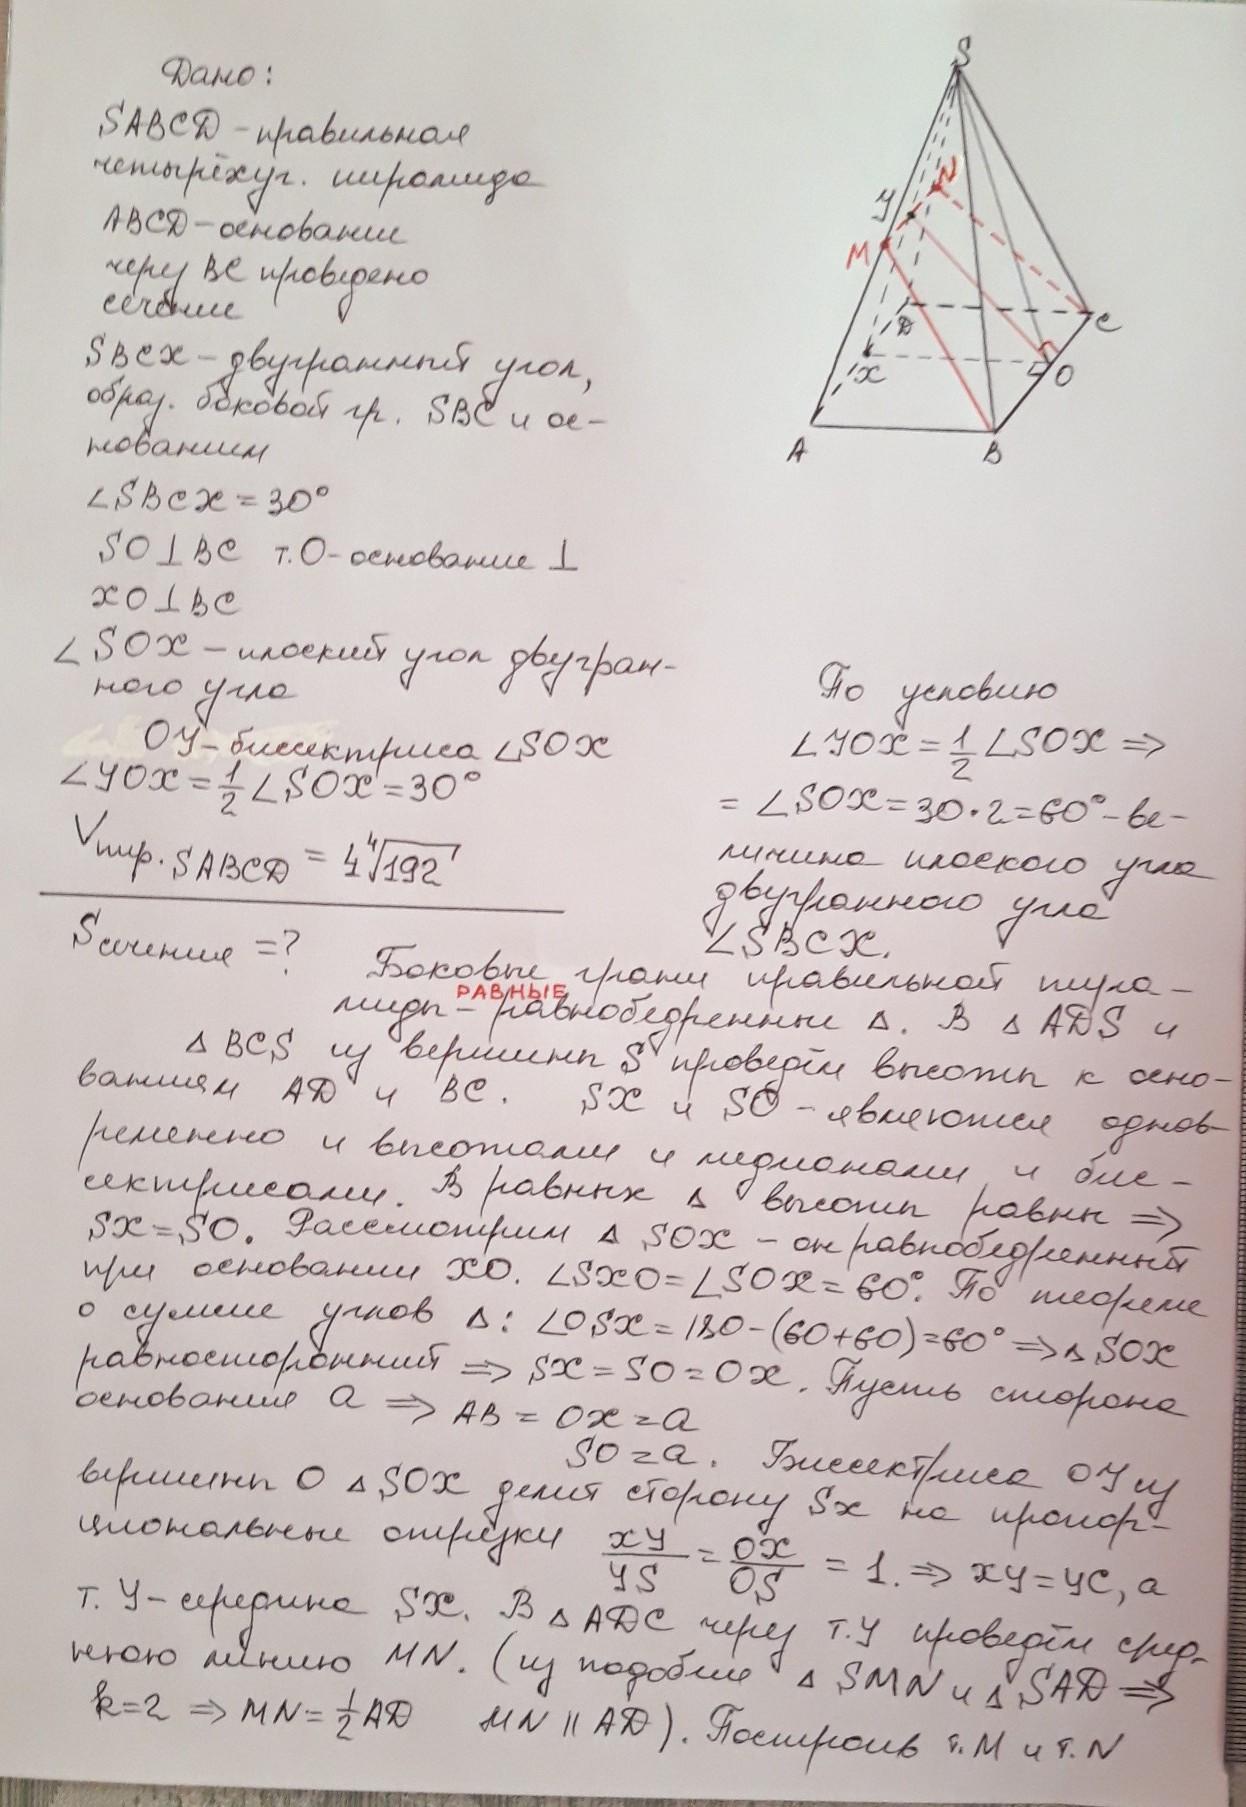 Дано:
SABCD - правильная
четырёхуг. пирамида
ABCD - основание
через BC проведено
сечение
SBCX - двугранный угол,
образ. боковой гр. SBC и ос-
нованием
∠SBCX = 30°
SO⊥BC т.O - основание ⊥
XO⊥BC
∠SOX - плоский угол двугран-
ного угла
OY - биссектриса ∠SOX
∠YOX = 1/2 ∠SOX = 30°
Vпир. SABCD = 4∜192
Sсечения = ?
S
Y
N
M
D
C
X
O
A
B
По условию
∠YOX = 1/2 ∠SOX ⇒
= ∠SOX = 30·2 = 60° - ве-
личина плоского угла
двугранного угла
∠SBCX.
Боковые грани правильной пира-
РАВНЫЕ
миды - равнобедренные Δ. В Δ ADS и
Δ BCS из вершины S проведём высоты к осно-
ваниям AD и BC. SX и SO - являются однов-
ременно и высотами и медианами и бис-
сектрисами. В равных Δ высоты равны ⇒
SX = SO. Рассмотрим Δ SOX - он равнобедренный
при основании XO. ∠SXO = ∠SOX = 60°. По теореме
о сумме углов Δ: ∠OSX = 180 - (60+60) = 60° ⇒ Δ SOX
равносторонний ⇒ SX = SO = OX. Пусть сторона
основания a ⇒ AB = OX = a
SO = a. Биссектриса OY из
вершины O Δ SOX делит сторону SX на пропор-
циональные отрезки XY/YS = OX/OS = 1. ⇒ XY = YC, а
т. Y - середина SX. В Δ ADC через т.Y проведём сред-
нюю линию MN. (из подобия Δ SMN и Δ SAD ⇒
k=2 ⇒ MN = 1/2 AD MN || AD). Построив т. M и т. N